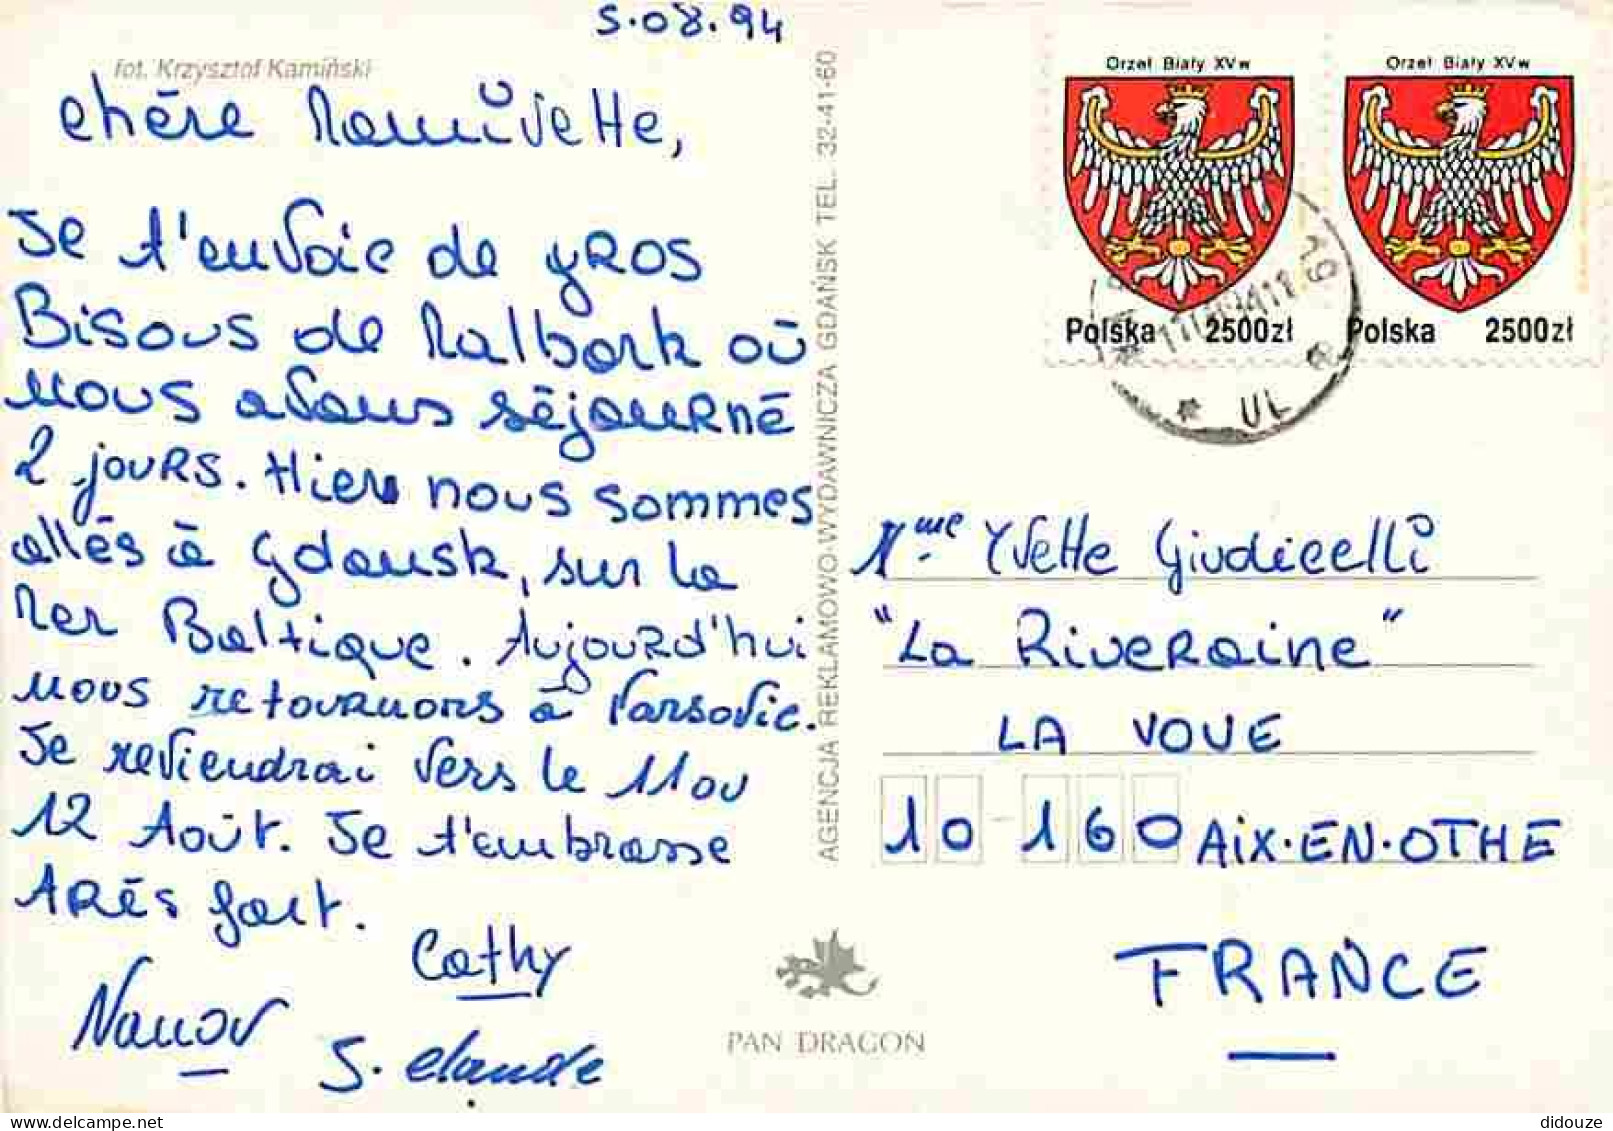 5.08.94
fot. Krzysztof Kamiński
chère Mamivette,
Je t'envoie de gros
Bisous de Malbork où
nous avons séjourné
2 jours. Hier nous sommes
allés à Gdansk, sur la
Mer Baltique. Aujourd'hui
nous retournons à Varsovie.
Je reviendrai vers le 11 ou
12 Août. Je t'embrasse
très fort.
Cathy
Nanou
J. Claude
AGENCJA REKLAMOWO-WYDAWNICZA GDAŃSK TEL. 32-41-60
PAN DRAGON
Orzeł Biały XVw
Polska 2500zł
Orzeł Biały XVw
Polska 2500zł
19
UL
Mme Yvette Giudicelli
"La Riveraine"
LA VOVE
10-160 AIX.EN.OTHE
FRANCE
didouze